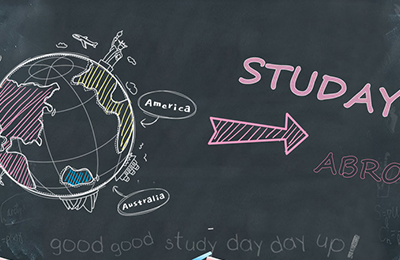 STUDAY
America
ABRO
Australia
good good study day day up!